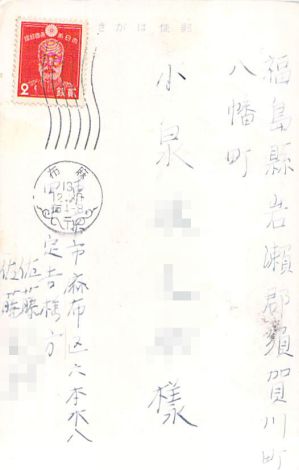 郵便はがき
大日本帝國郵便
2
貳錢
福島縣岩瀬郡須賀川町
八幡町
小泉
樣
麻布
13
12
市麻布区六本木八
定吉様方
佐藤
佐藤